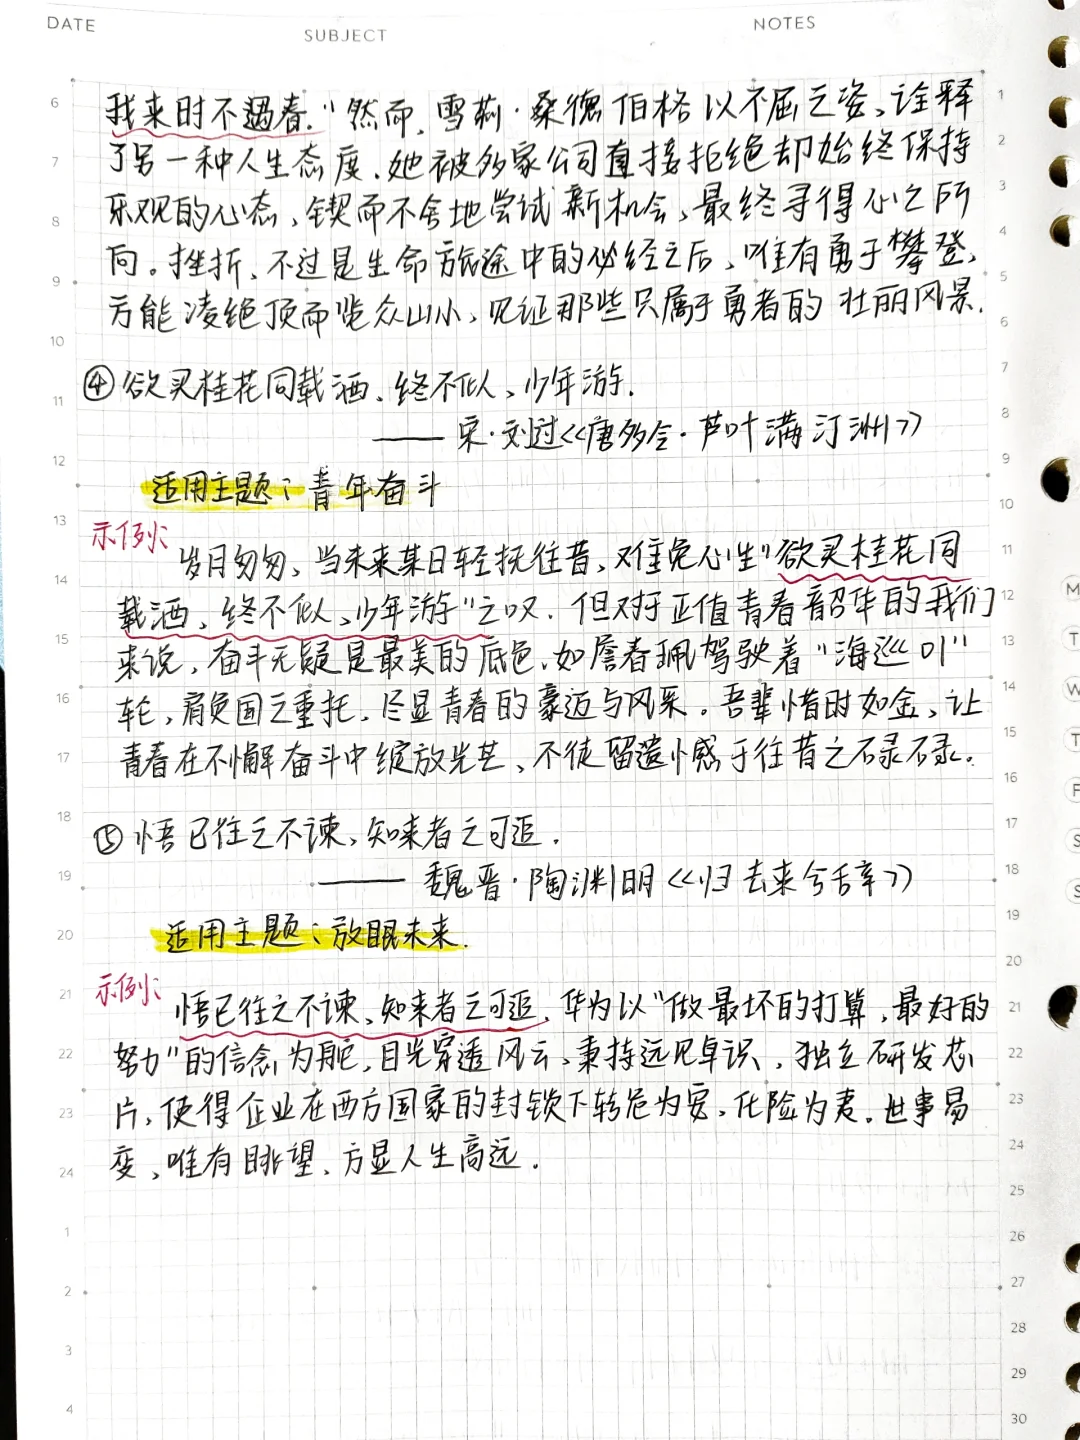 DATE
SUBJECT
NOTES
我来时不遇春."然而,雪莉·桑德伯格以不屈之姿、诠释
了另一种人生态度.她被多家公司直接拒绝却始终保持
乐观的心态、锲而不舍地尝试新机会、最终寻得心之所
向。挫折、不过是生命旅途中的必经之后、唯有勇于攀登,
方能凌绝顶而览众山小、见证那些只属于勇者的壮丽风景.
④欲买桂花同载酒、终不似、少年游.
——宋·刘过《唐多令·芦叶满汀洲》
适用主题:青年奋斗
示例:
岁月匆匆、当未来某日轻抚往昔、难免心生"欲买桂花同
载酒、终不似、少年游"之叹.但对于正值青春韶华的我们
来说,奋斗无疑是最美的底色.如詹春珮驾驶着"海巡01"
轮,肩负国之重托,尽显青春的豪迈与风采。吾辈惜时如金、让
青春在不懈奋斗中绽放光芒、不徒留遗憾于往昔之碌碌.
⑤悟已往之不谏、知来者之可追.
——魏晋·陶渊明《归去来兮辞》
适用主题:放眼未来.
示例:
悟已往之不谏、知来者之可追.华为以"做最坏的打算,最好的
努力"的信念为舵,目光穿透风云、秉持远见卓识,独立研发芯
片,使得企业在西方国家的封锁下转危为安、化险为夷.世事易
变、唯有眺望、方显人生高远.
6
7
8
9
10
11
12
13
14
15
16
17
18
19
20
21
22
23
24
1
2
3
4
1
2
3
4
5
6
7
8
9
10
11
12
13
14
15
16
17
18
19
20
21
22
23
24
25
26
27
28
29
30
M
T
W
T
F
S
S